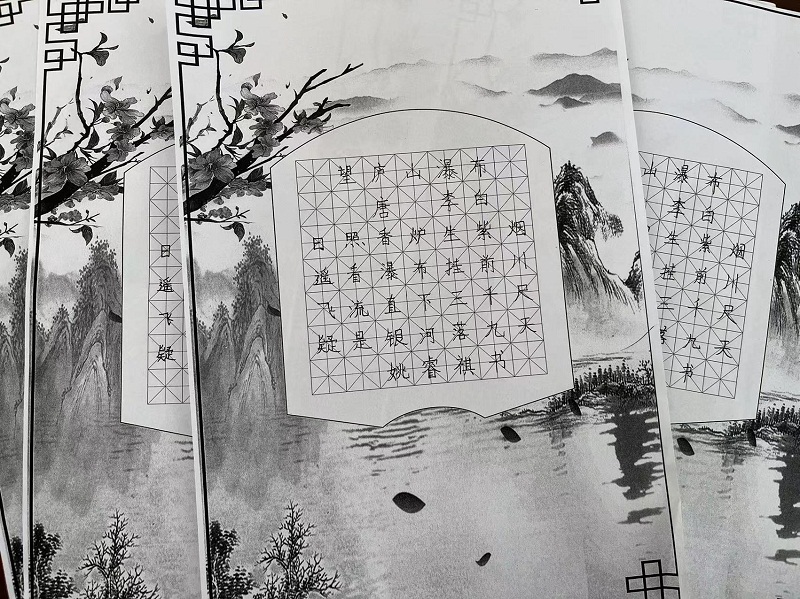 日
遥
飞
疑
望庐山瀑布
唐 李白
日照香炉生紫烟
遥看瀑布挂前川
飞流直下三千尺
疑是银河落九天
姚睿祺书
山瀑布
李白
生紫烟
挂前川
三千尺
落九天
书